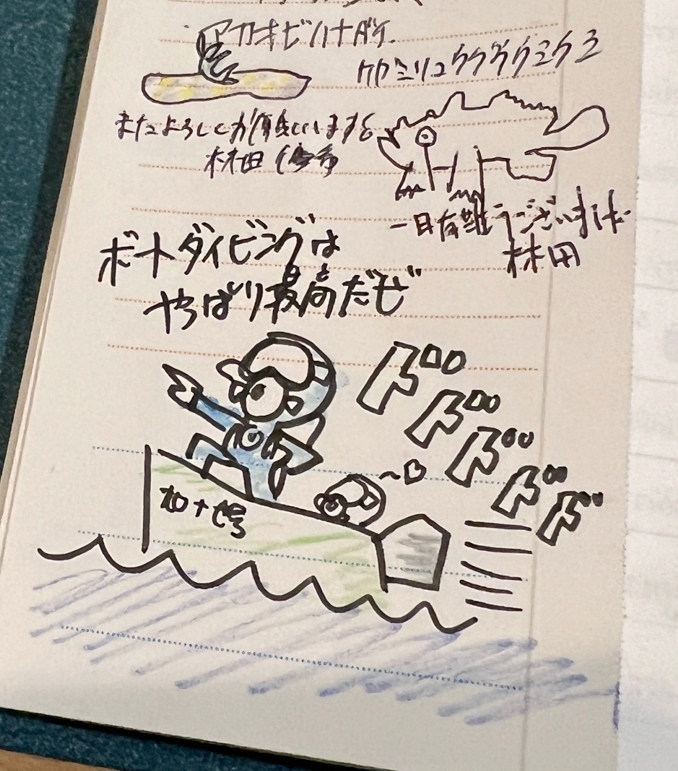 アカオビハナダイ
ケヤミリュウグウウミウシ
またよろしくお願いします
林田
一日有難うございました
林田
ボートダイビングは
やっぱり最高だぜ
ドドドドド
号